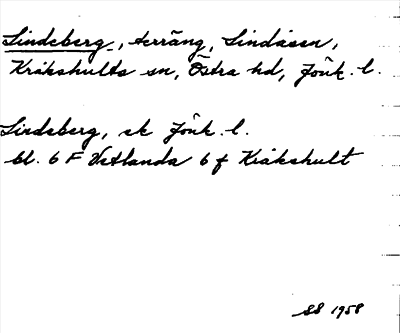 Lindeberg, terräng, Lindåsen,
Kråkshults sn, Östra hd, Jönk. l.
Lindeberg, ek Jönk. l.
bl. 6 F Vetlanda 6 f Kråkshult
SS 1958